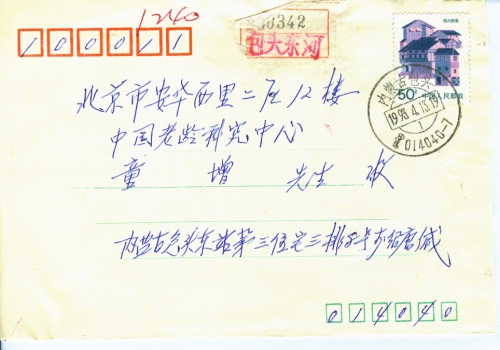 1240
100011
38342
包头东河
四川民居
50分 中国人民邮政
内蒙古包头
1993.4.13.19
1
014040-7
北京市安华西里二区12楼
中国老龄科究中心
童 增 先生 收
内蒙古包头东站第三住宅三排8号
014040